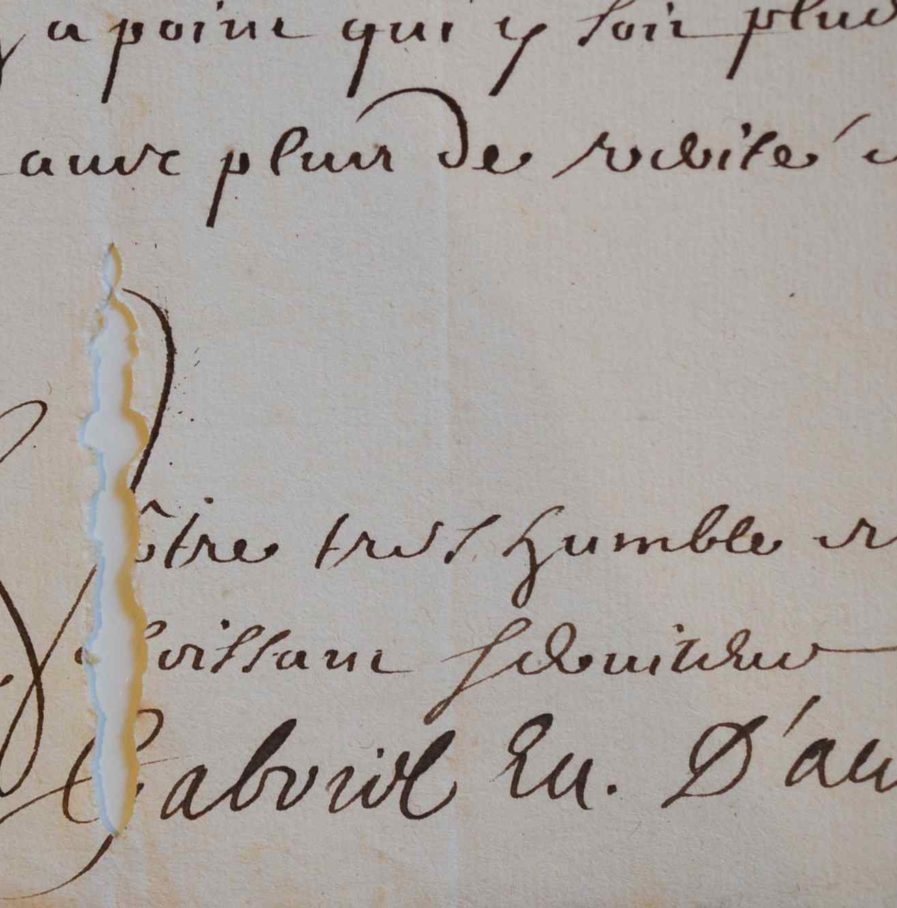 y a point qui y soit plus
avec plus de
Votre tres humble et
obeissant serviteur
Gabriel Ev. D'au